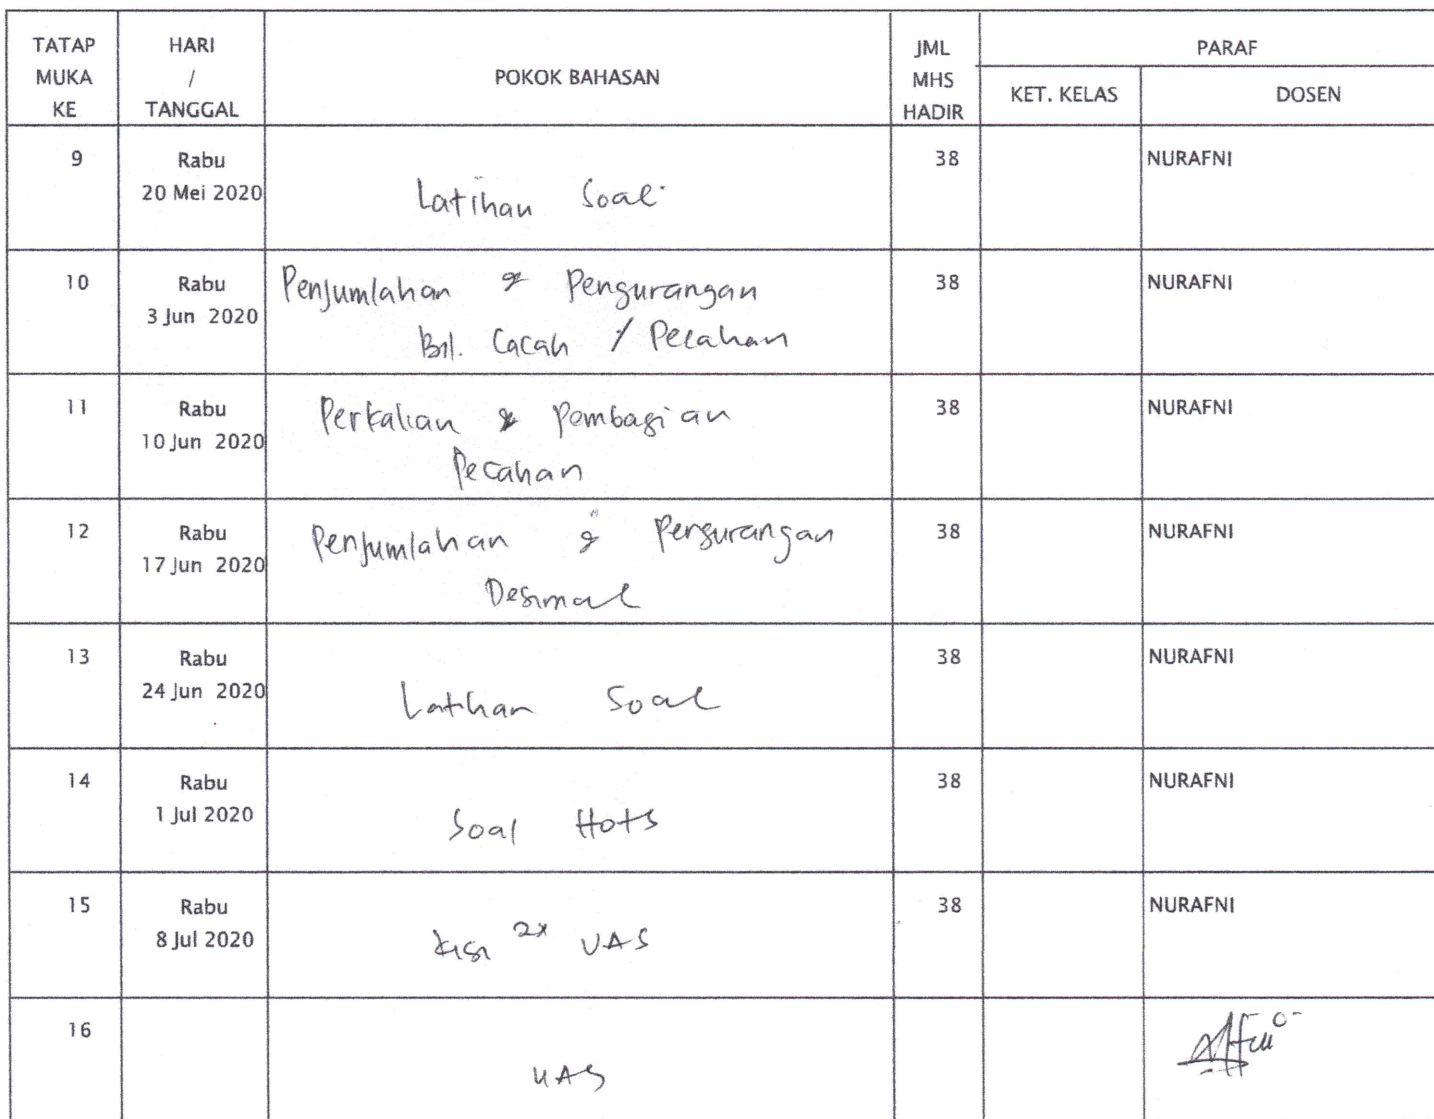 TATAP MUKA KE
HARI / TANGGAL
POKOK BAHASAN
JML MHS HADIR
PARAF
KET. KELAS
DOSEN
9
Rabu
20 Mei 2020
Latihan Soal
38
NURAFNI
10
Rabu
3 Jun 2020
Penjumlahan & Pengurangan
Bil. Cacah / Pecahan
38
NURAFNI
11
Rabu
10 Jun 2020
Perkalian & Pembagian
Pecahan
38
NURAFNI
12
Rabu
17 Jun 2020
Penjumlahan & Pengurangan
Desimal
38
NURAFNI
13
Rabu
24 Jun 2020
Latihan Soal
38
NURAFNI
14
Rabu
1 Jul 2020
Soal Hots
38
NURAFNI
15
Rabu
8 Jul 2020
kisi 2x UAS
38
NURAFNI
16
UAS